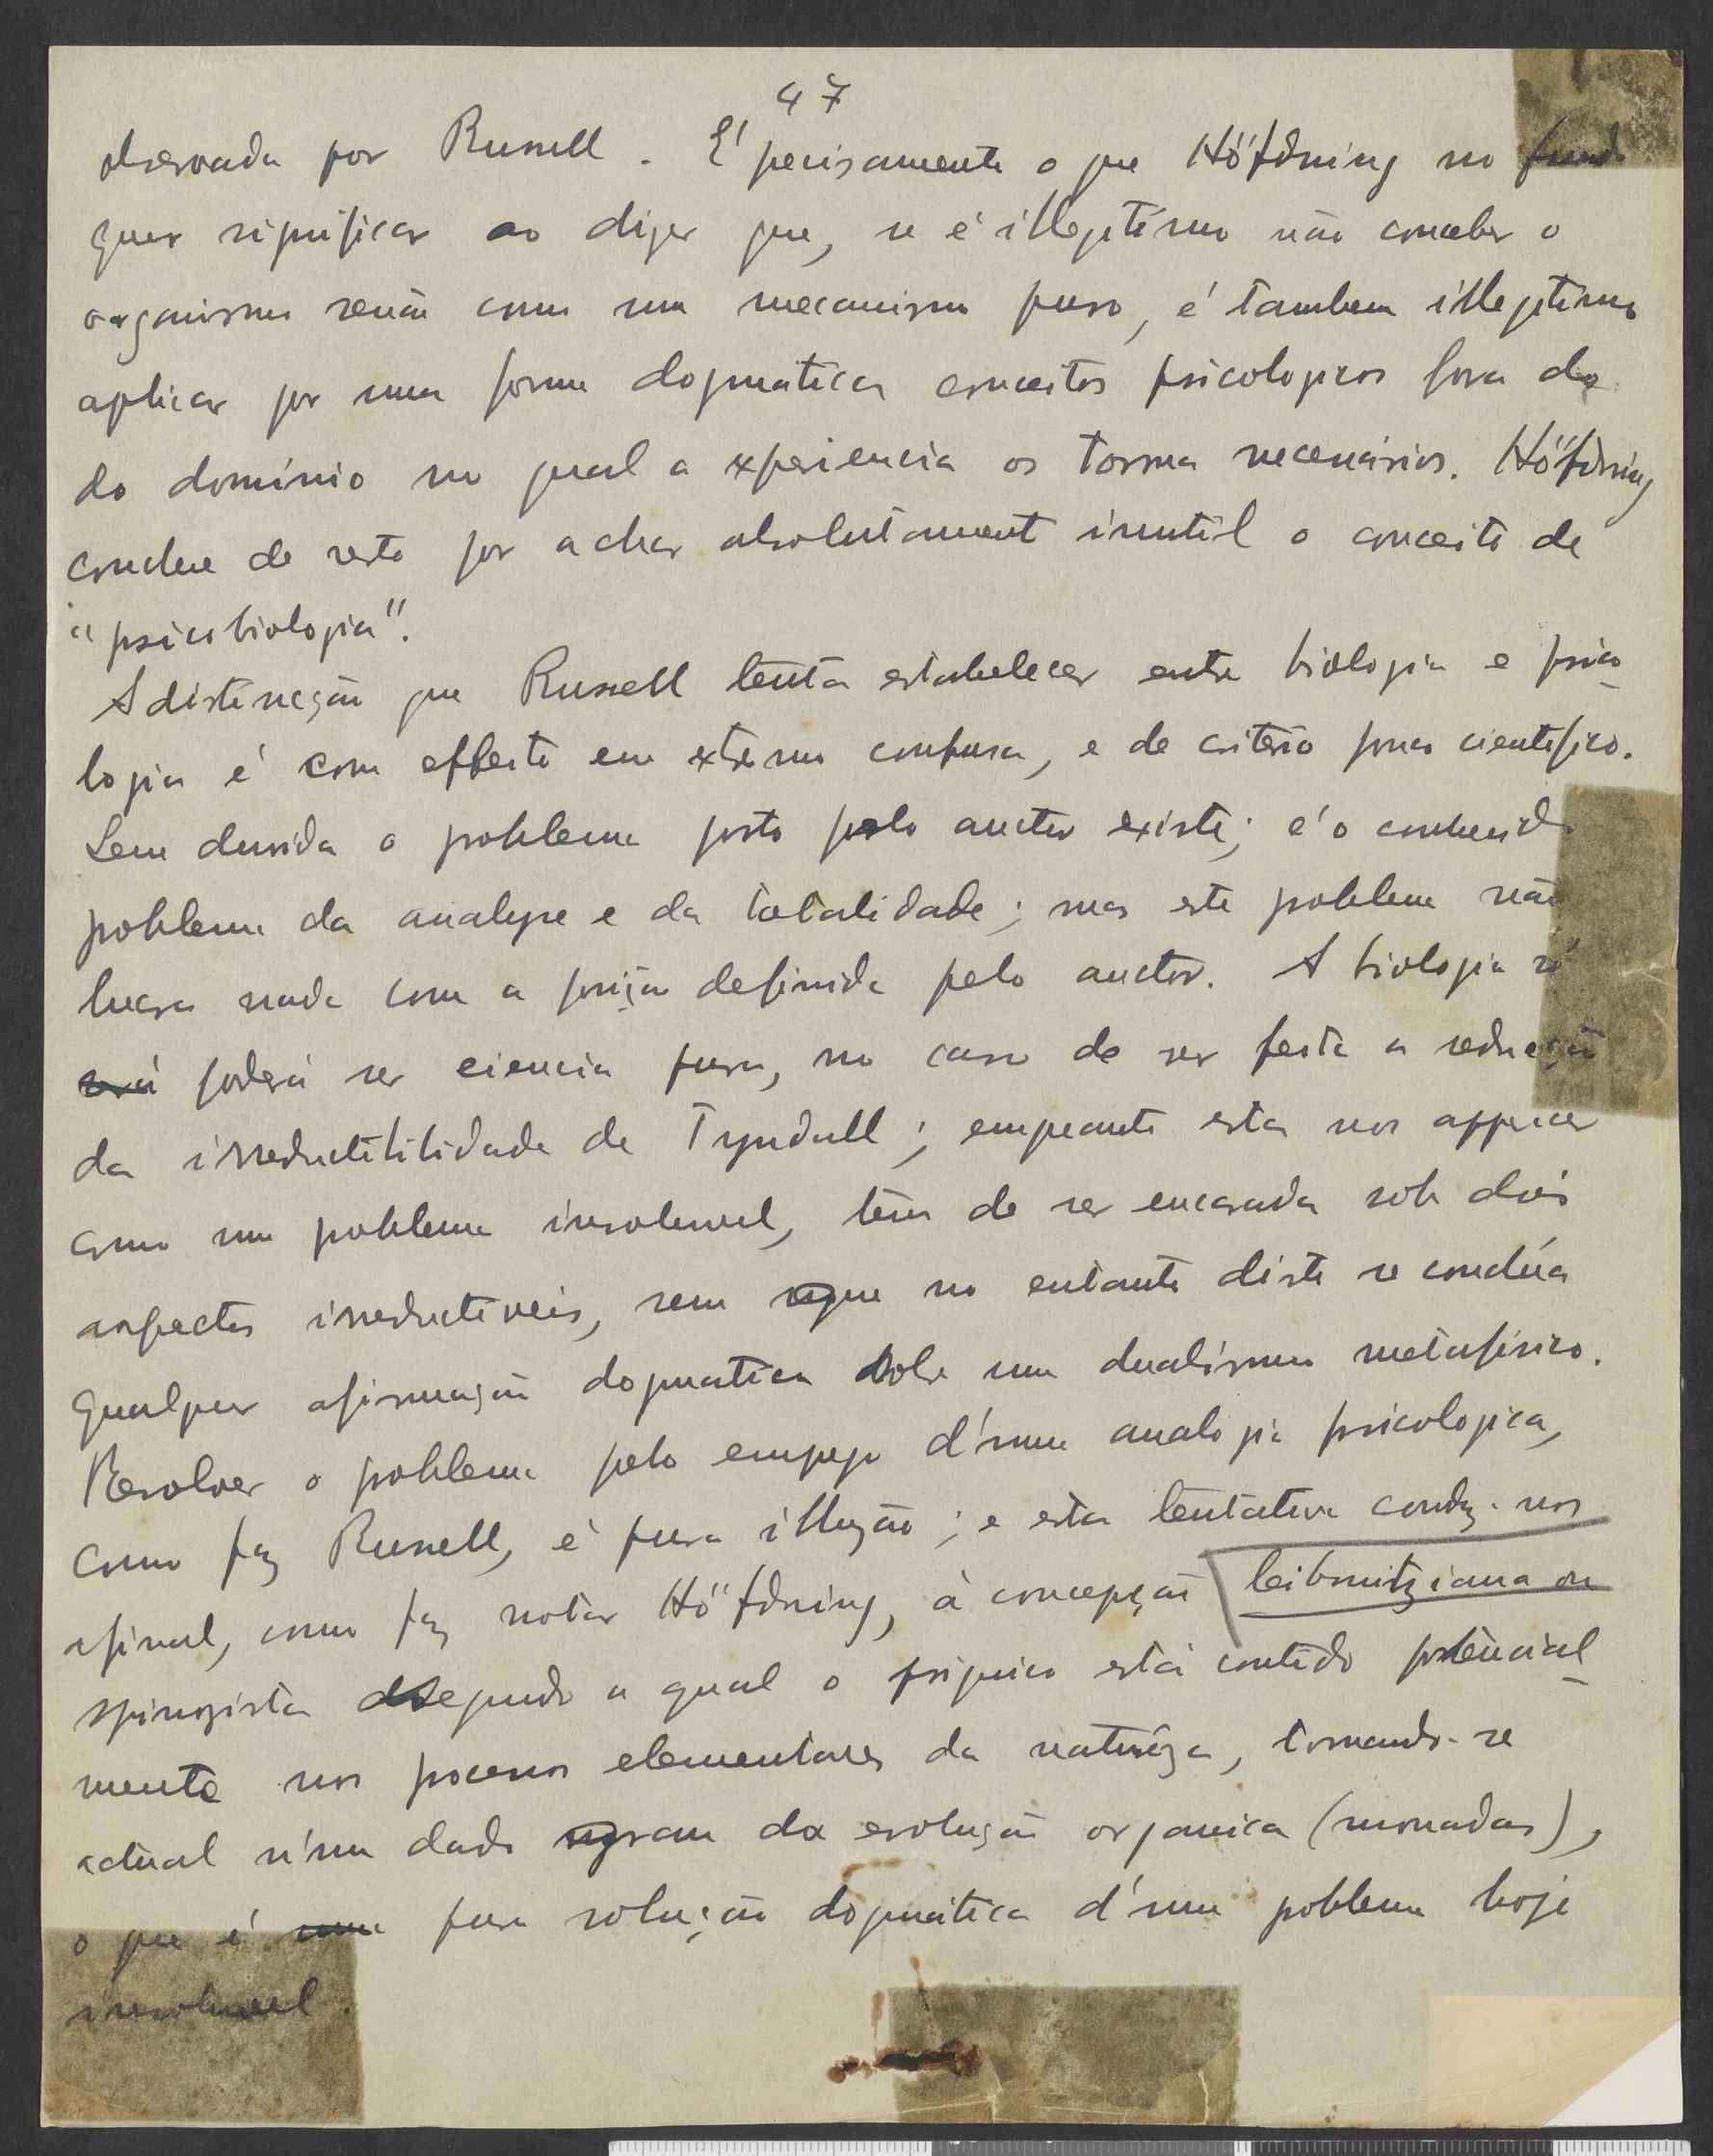 47
observada por Russell. É precisamente o que Höfdning no fundo
quer significar ao dizer que, se é illegitimo não conceber o
organismo senão como um mecanismo puro, é tambem illegitimo
aplicar por uma forma dogmatica conceitos psicologicos fora do
do domínio no qual a experiencia os torna necessários. Höfdning
conclue de resto por achar absolutament inutil o conceito de
"psicobiologia".
A distincção que Russell tenta estabelecer entre biologia e psico-
logia é com effeito em extremo confusa, e de critério pouco cientifico.
Sem duvida o problema posto pelo auctor existe; é o conhecido
problema da analyse e da totalidade; mas este problema não
lucra nada com a posição definida pelo auctor. A biologia só
será poderá ser ciencia pura, no caso de ser feita a reducção
da irreductibilidade de Tyndall; emquanto esta nos apparecer
como um problema insoluvel, tem de ser encarada sob dois
aspectos irreductiveis, sem que no entanto disto se conclúa
qualquer afirmação dogmatica sobre um dualismo metafisico.
Resolver o problema pelo emprego d'uma analogia psicologica,
como faz Russell, é pura illusão; e esta tentativa conduz-nos
afinal, como faz notar Höfdning, á concepção leibnitziana ou
spinozista segundo a qual o psiquico está contido potêncial-
mente nos processos elementares da naturêza, tornando-se
actual n'um dado grau da evolução organica (monadas),
o que é uma pura solução dogmática d'um problema hoje
insoluvel.